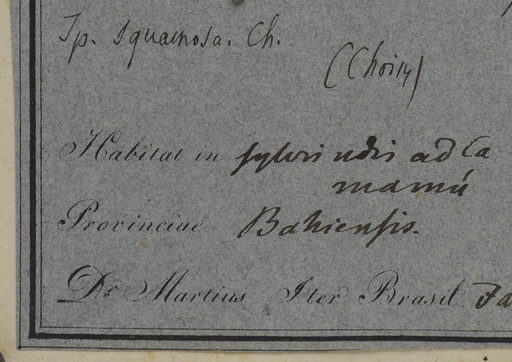 Ip. squamosa. Ch.
(Choisy)
Habitat in sylvis udis ad Ca
mamú
Provinciae Bahiensis.
Dr. Martius Iter Brasil.